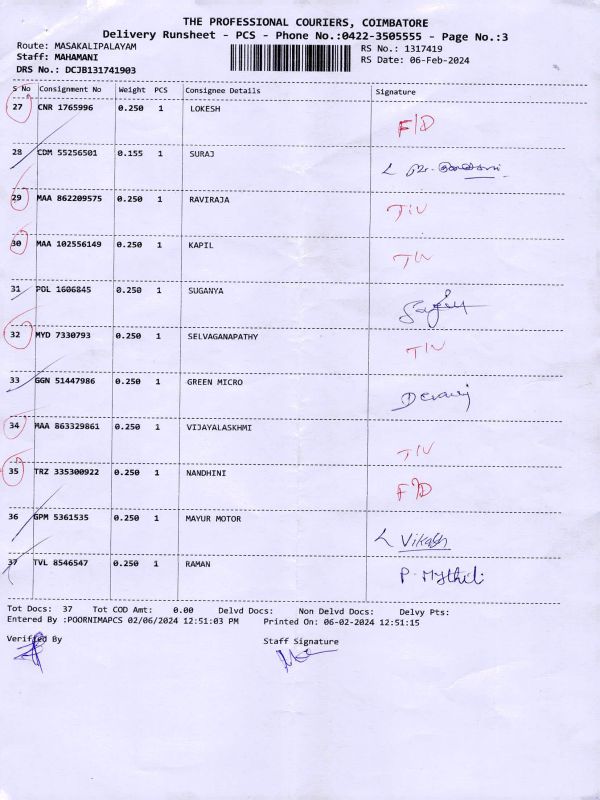 THE PROFESSIONAL COURIERS, COIMBATORE
Delivery Runsheet - PCS - Phone No.:0422-3505555 - Page No.:3
Route: MASAKALIPALAYAM RS No.: 1317419
Staff: MAHAMANI RS Date: 06-Feb-2024
DRS No.: DCJB131741903
S No Consignment No Weight PCS Consignee Details Signature
27 CNR 1765996 0.250 1 LOKESH
F/D
28 CDM 55256501 0.155 1 SURAJ
29 MAA 862209575 0.250 1 RAVIRAJA
30 MAA 102556149 0.250 1 KAPIL
31 POL 1606845 0.250 1 SUGANYA
32 MYD 7330793 0.250 1 SELVAGANAPATHY
33 GGN 51447986 0.250 1 GREEN MICRO
34 MAA 863329861 0.250 1 VIJAYALASKHMI
35 TRZ 335300922 0.250 1 NANDHINI
F/D
36 GPM 5361535 0.250 1 MAYUR MOTOR
Vikash
37 TVL 8546547 0.250 1 RAMAN
P. Mythili
Tot Docs: 37 Tot COD Amt: 0.00 Delvd Docs: Non Delvd Docs: Delvy Pts:
Entered By :POORNIMAPCS 02/06/2024 12:51:03 PM Printed On: 06-02-2024 12:51:15
Verified By Staff Signature